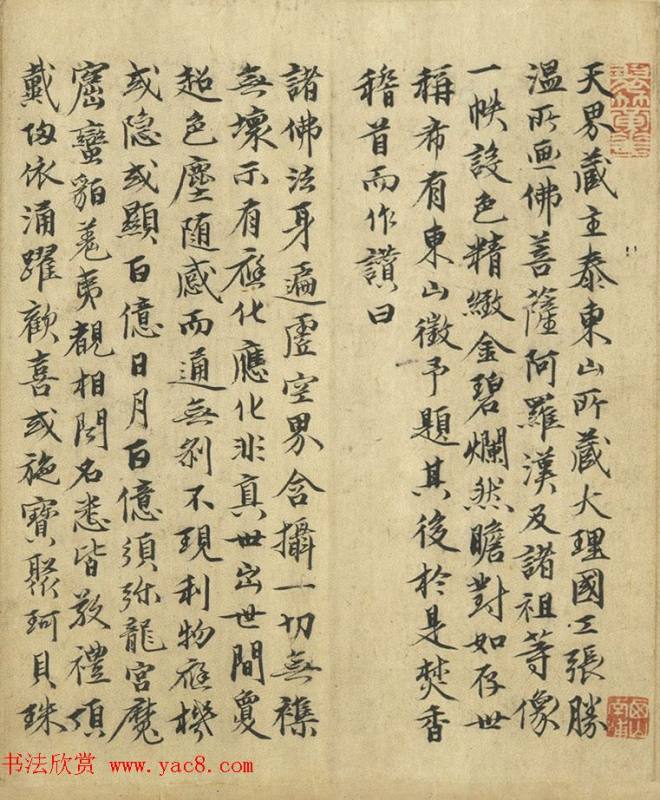 天界藏主泰東山所藏大理國工張勝
溫所画佛菩薩阿羅漢及諸祖等像
一帙設色精緻金碧爛然瞻對如存世
稱希有東山徵予題其後於是焚香
稽首而作讚曰
諸佛法身遍虛空界含攝一切無襍
無壞示有應化應化非真世出世間敻
超色塵隨感而通無剎不現利物應機
或隐或顯百億日月百億須弥龍宮魔
窟蠻貊羌夷覩相聞名悉皆敬禮頂
戴歸依涌躍歡喜或施寶聚珂貝珠
书法欣赏 www.yac8.com